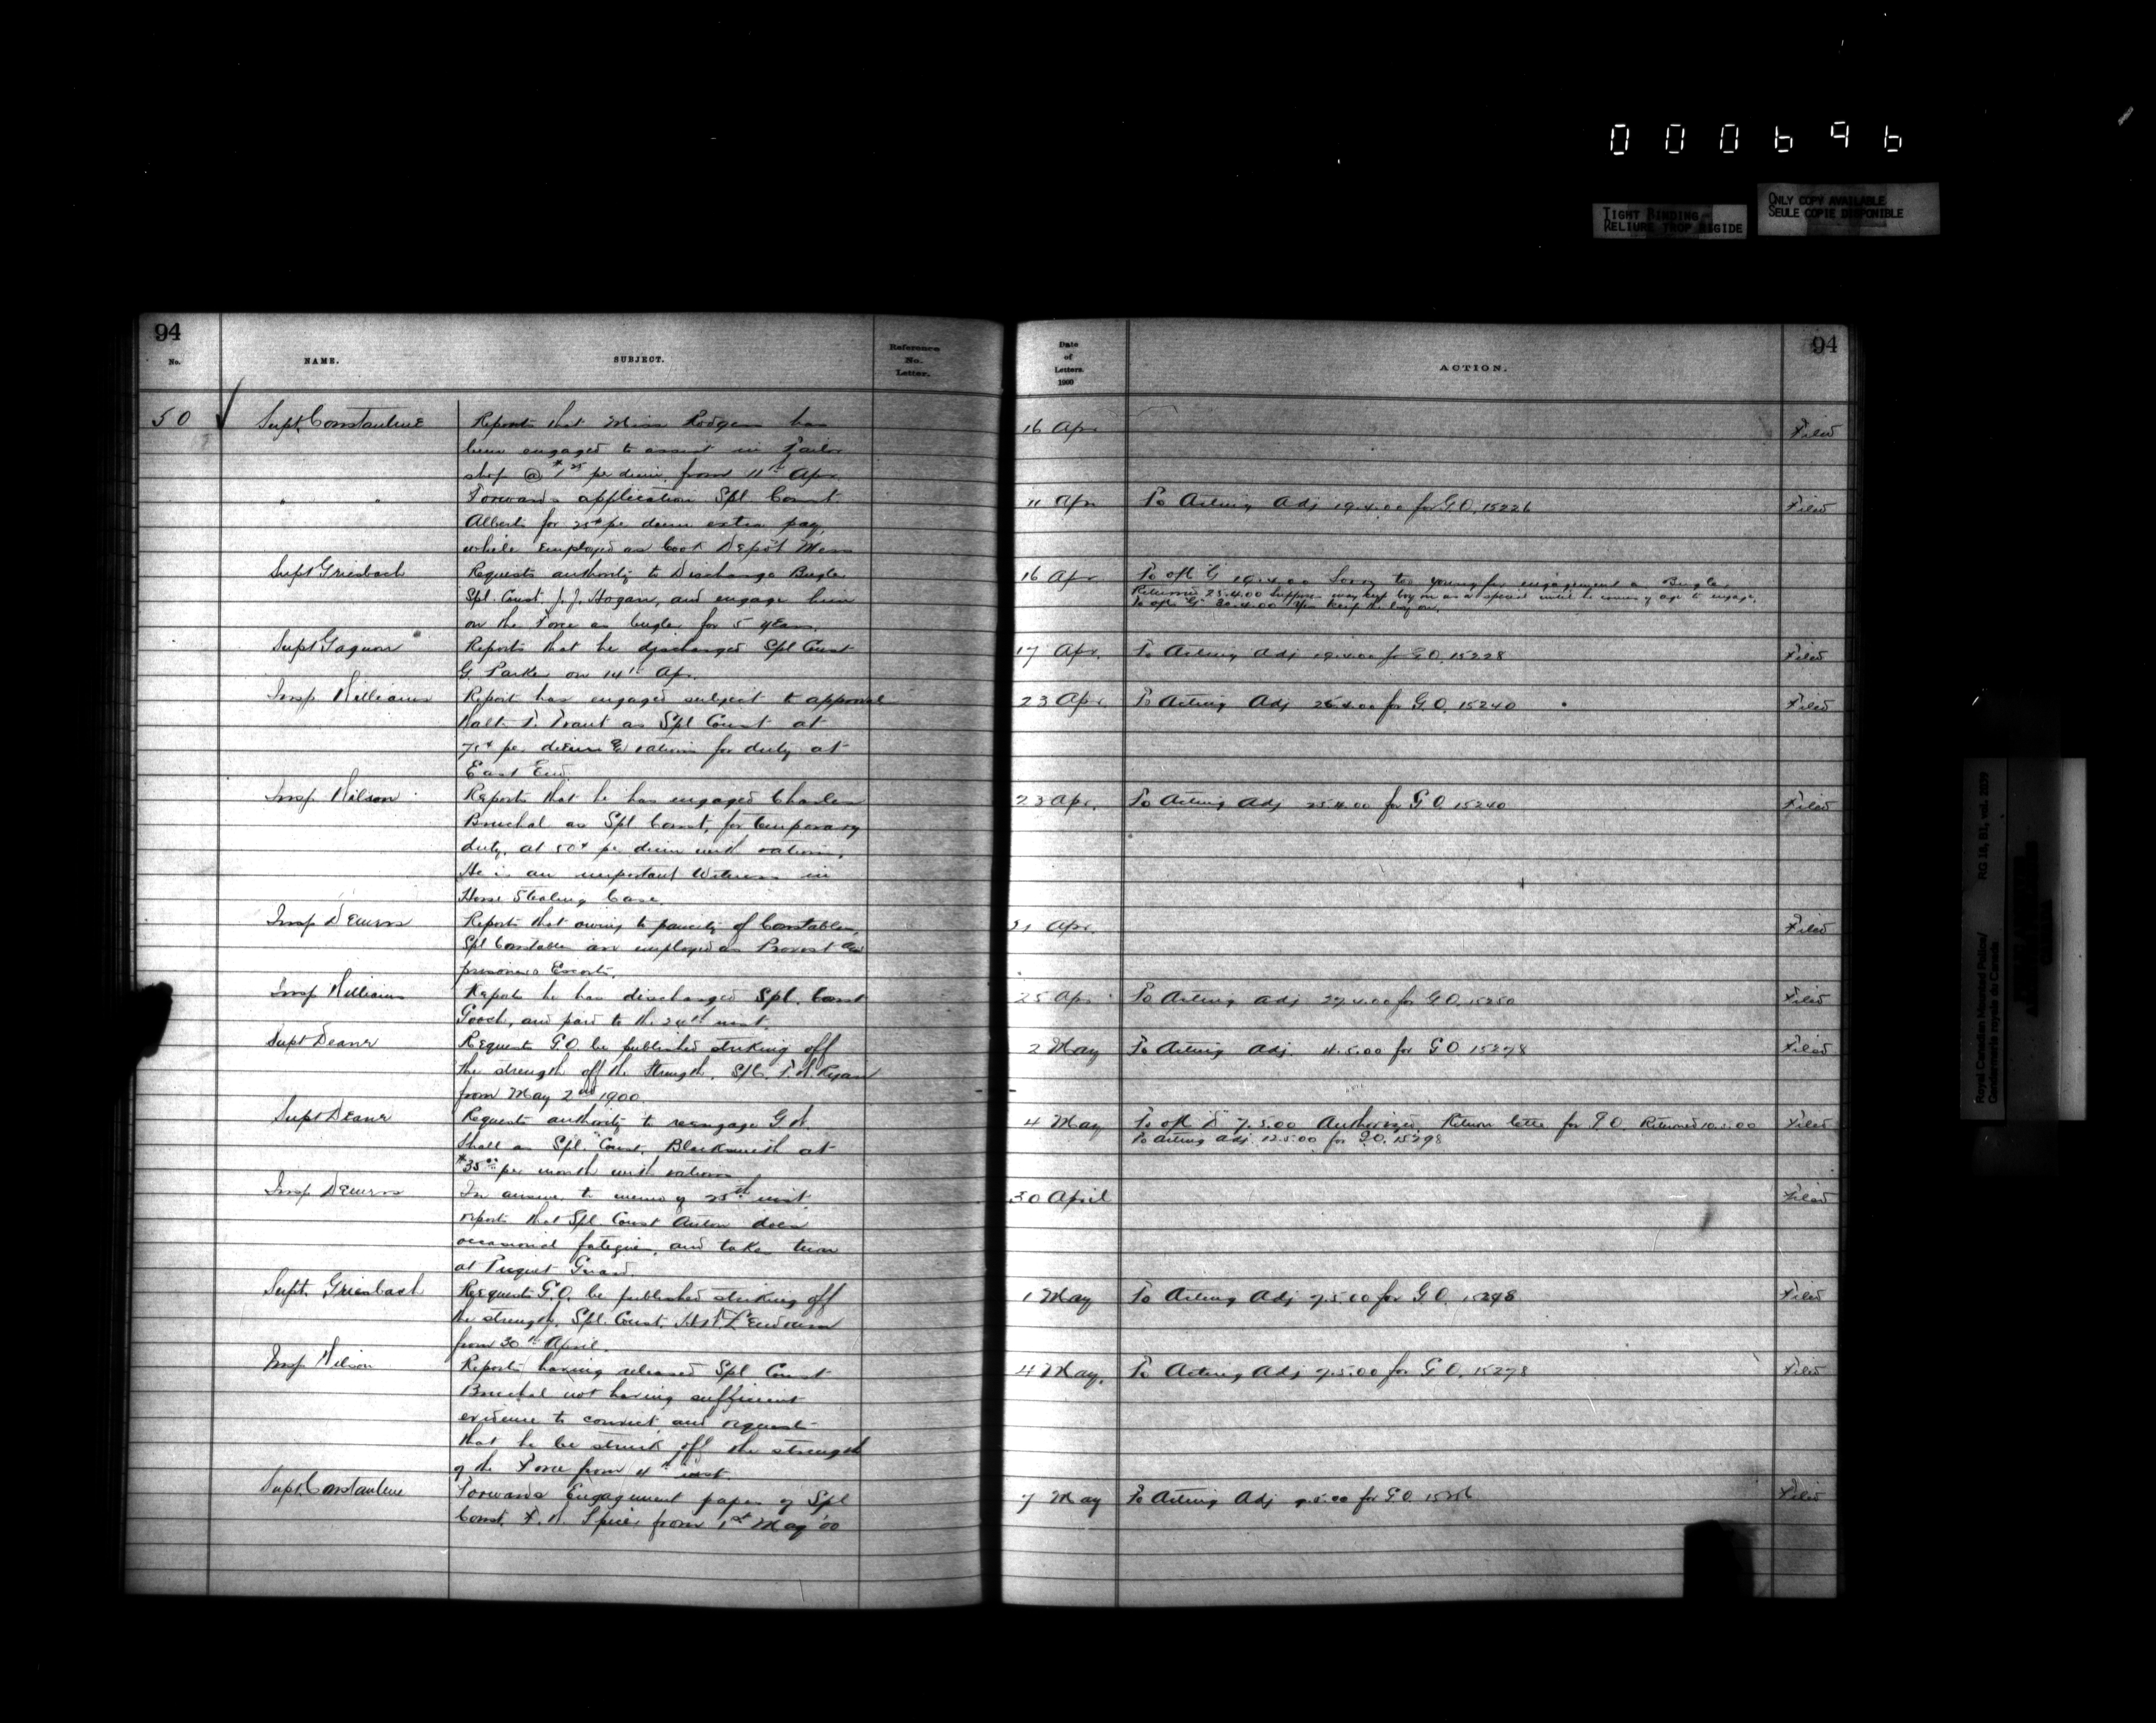 000696
TIGHT BINDING
RELIURE TROP RIGIDE
ONLY COPY AVAILABLE
SEULE COPIE DISPONIBLE
94
No.
NAME.
SUBJECT.
Reference
No.
Letter.
Date
of
Letters.
1900
ACTION.
94
50 Supt Constantine Reports that Miss Rodgers has 16 Apr Filed
been engaged to assist in Tailor
shop @ $1.25 per diem from 11th Apr.
" " Forwards application Spl Const 11 Apr To Acting Adj 19.4.00 for G.O. 15226 Filed
Albert for 25¢ per diem extra pay,
while employed as Cook Depot Mess
Supt Griesbach Requests authority to discharge Bugler 16 Apr To offr G 19.4.00 Sorry too young for engagement as Bugler.
Spl. Const. J. J. Hogan, and engage him Returned 25.4.00 Suppose may keep boy on as a special until he comes of age to engage.
on the Force as bugler for 5 years. To offr "G" 30.4.00 Yes keep the boy on.
Supt Gagnon Reports that he discharged Spl Const 17 Apr To Acting Adj 19.4.00 for G.O. 15228 Filed
G. Parker on 14th Apr.
Insp Williams Report has engaged subject to approval 23 Apr. To Acting Adj 25.4.00 for G.O. 15240 Filed
Walt. F. as Spl Const at
75¢ per diem & rations for duty at
East End.
Insp. Wilson Reports that he has engaged Charles 23 Apr. To Acting Adj 25.4.00 for G.O. 15240 Filed
Bruchal as Spl Const, for temporary
duty, at 50¢ per diem with rations.
He is an important Witness in
Horse Stealing Case.
Insp Demers Reports that owing to paucity of Constables, 21 Apr. Filed
Spl Constables are employed as Provost and
prisoners Escorts.
Insp Williams Reports he has discharged Spl. Const 25 Apr To Acting Adj 27.4.00 for G.O. 15250 Filed
Gooch, and paid to the 24th inst.
Supt Deane Requests G.O. be published striking off 2 May To Acting Adj. 4.5.00 for G.O 15278 Filed
the strength off the Strength, S/C. T. H. Ryan
from May 2nd 1900.
Supt Deane Requests authority to reengage G. W. 4 May To offr "D" 7.5.00 Authorized. Return letter for G.O. Returned 10.5.00 Filed
Shell as Spl. Const. Blacksmith at To acting adj. 12.5.00 for G.O. 15298
$35.00 per month with rations
Insp Demers In answer to memo of 25th inst 30 April Filed
reports that Spl Const Anton does
occasional fatigue, and takes turn
at Piquet Guard.
Supt. Griesbach Requests G.O. be published striking off 1 May To Acting Adj 7.5.00 for G.O. 15298 Filed
the strength, Spl. Const.
from 30th April.
Insp Wilson Reports having released Spl Const 4 May. To Acting Adj 7.5.00 for G.O. 15278 Filed
Bruchal not having sufficient
evidence to convict, and requests
that he be struck off the strength
of the Force from 4th inst.
Supt. Constantine Forwards Engagement papers of Spl 7 May To Acting Adj 9.5.00 for G.O. Filed
Const. F. W. Spicer from 1st May '00
Royal Canadian Mounted Police/
Gendarmerie royale du Canada
RG 18, B1, vol. 2039